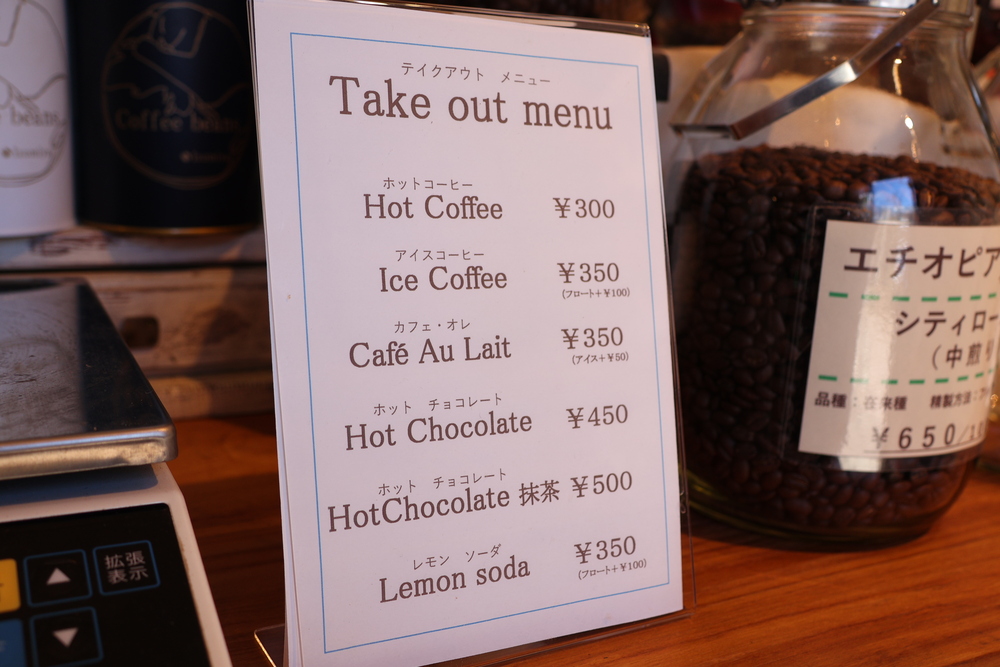 テイクアウト メニュー
Take out menu
ホットコーヒー
Hot Coffee ¥300
アイスコーヒー
Ice Coffee ¥350
(フロート+¥100)
カフェ・オレ
Café Au Lait ¥350
(アイス+¥50)
ホット チョコレート
Hot Chocolate ¥450
ホット チョコレート
HotChocolate 抹茶 ¥500
レモン ソーダ
Lemon soda ¥350
(フロート+¥100)
エチオピア
シティロー
(中煎
品種:在来種 精製方法:
¥650/10
Coffee beans
拡張
表示